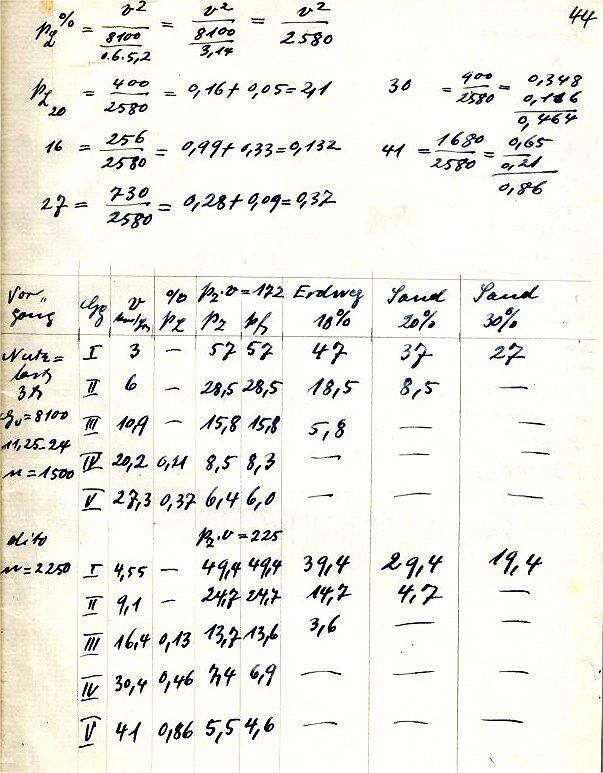 44
p_L % = v² / (8100 / 0.6·5,2) = v² / (8100 / 3,14) = v² / 2580
p_L 20 = 400/2580 = 0,16 + 0,05 = 2,1
30 = 900/2580 = 0,348
0,116
0,464
16 = 256/2580 = 0,99 + 0,33 = 0,132
41 = 1680/2580 = 0,65
0,21
0,86
27 = 730/2580 = 0,28 + 0,09 = 0,37
Vor„ gang | Gg | v km/h | % p_L | p_z·v = 172 p_z | p_f | Erdweg 10% | Sand 20% | Sand 30%
Nutz= last 3t | I | 3 | — | 57 | 57 | 47 | 37 | 27
II | 6 | — | 28,5 | 28,5 | 18,5 | 8,5 | —
G_v = 8100 | III | 10,9 | — | 15,8 | 15,8 | 5,8 | — | —
11,25-24 | IV | 20,2 | 0,21 | 8,5 | 8,3 | — | — | —
n = 1500 | V | 27,3 | 0,37 | 6,4 | 6,0 | — | — | —
dito | p_z·v = 225
n = 2250 | I | 4,55 | — | 49,4 | 49,4 | 39,4 | 29,4 | 19,4
II | 9,1 | — | 24,7 | 24,7 | 14,7 | 4,7 | —
III | 16,4 | 0,13 | 13,7 | 13,6 | 3,6 | — | —
IV | 30,4 | 0,46 | 7,4 | 6,9 | — | — | —
V | 41 | 0,86 | 5,5 | 4,6 | — | — | —